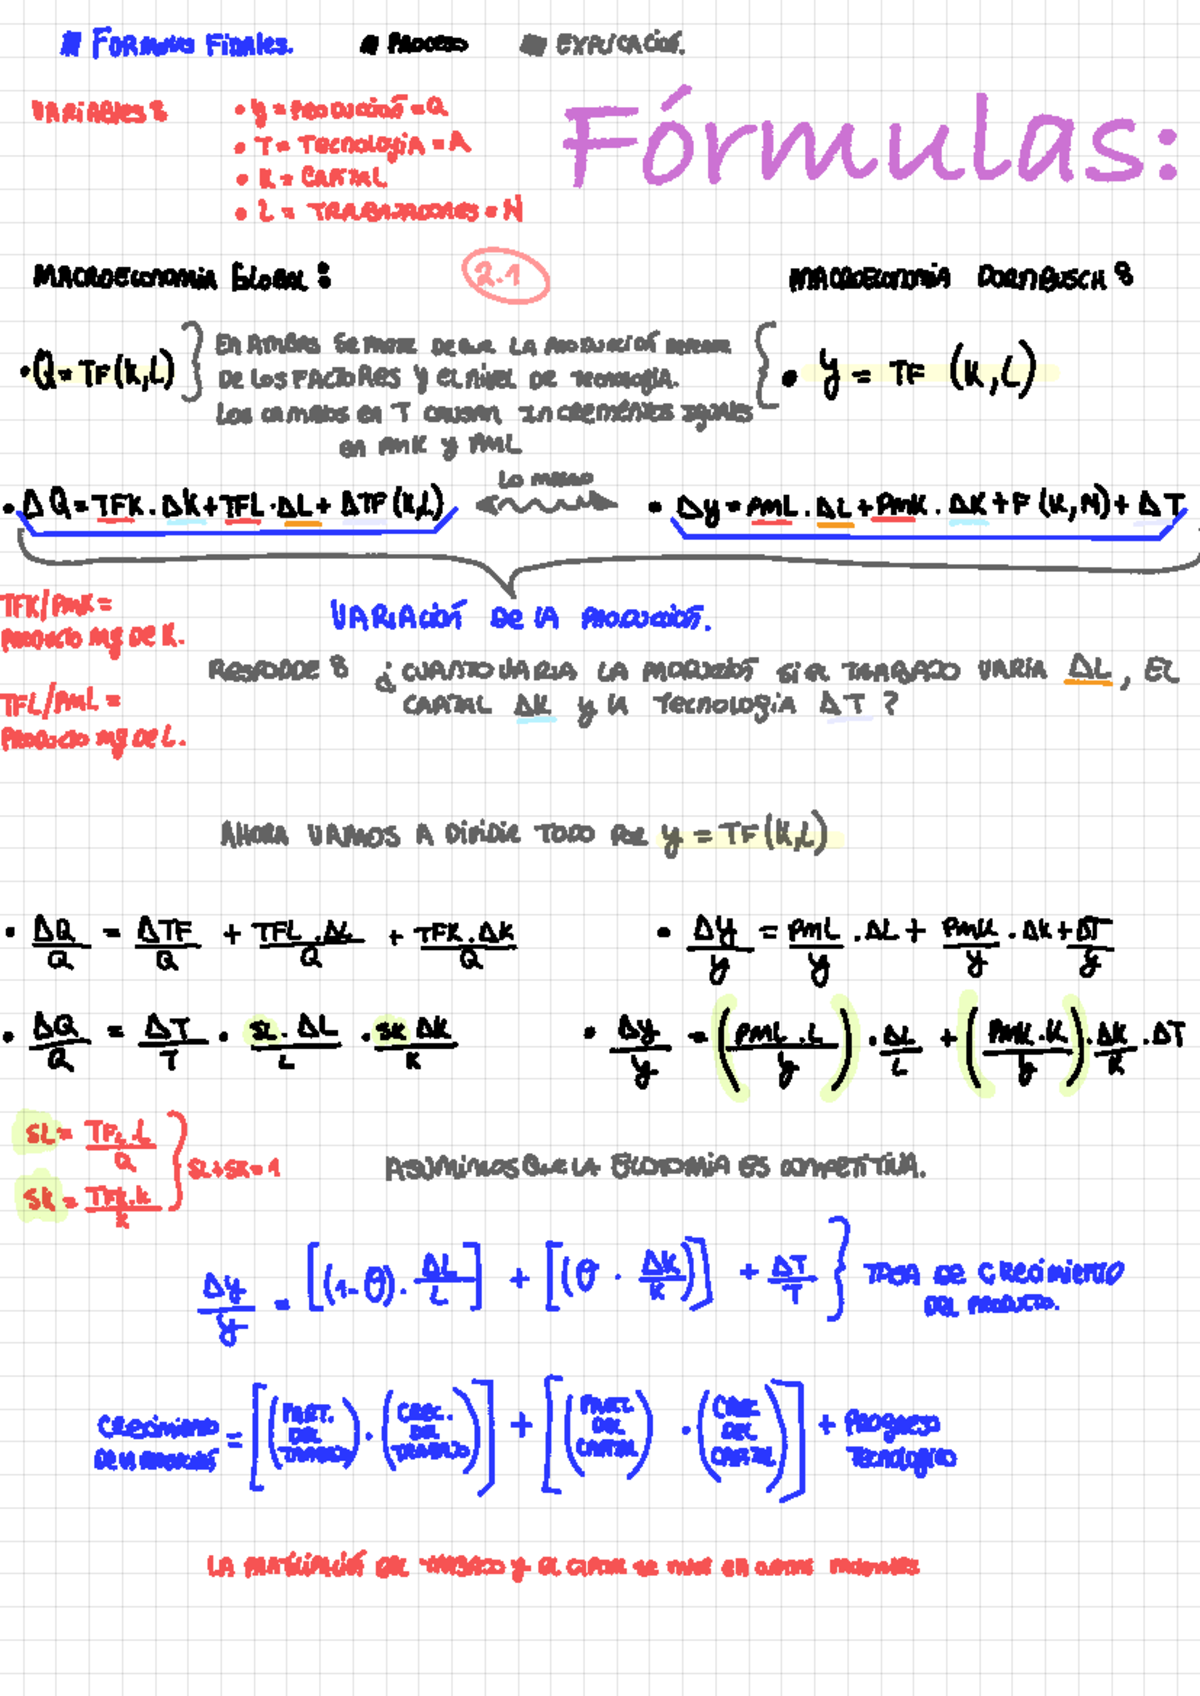 # Formulas Finales. # Proceso # Explicación.
Variables:
• y = Producción = Q
• T = Tecnología = A
• K = Capital
• L = Trabajadores = N
Fórmulas:
Macroeconomía Global:
2.1
Macroeconomía Dornbusch:
• Q = TF(K,L)
En ambas se parte de que la producción depende
de los factores y el nivel de tecnología.
Los cambios en T causan incrementos iguales
en PMK y PML
• y = TF (K,L)
• ΔQ = TFK · ΔK + TFL · ΔL + ΔTF(K,L)
Lo mismo
• Δy = PML · ΔL + PMK · ΔK + F(K,N) + ΔT
TFK/PMK =
Producto mg de K.
TFL/PML =
Producto mg de L.
Variación de la producción.
Responde: ¿Cuanto varia la producción si el trabajo varía ΔL, el
capital ΔK y la tecnología ΔT?
Ahora vamos a dividir todo por y = TF(K,L)
• ΔQ/Q = ΔTF/Q + TFL·ΔL/Q + TFK·ΔK/Q
• Δy/y = PML/y · ΔL + PMK/y · ΔK + ΔT/y
• ΔQ/Q = ΔT/T · SL·ΔL/L · SK ΔK/K
• Δy/y = (PML·L/y) · ΔL/L + (PMK·K/y) · ΔK/K · ΔT
SL = TFL·L/Q
SK = TFK·K/K
SL+SK=1
Asumimos que la economía es competitiva.
Δy/y = [(1-θ) · ΔL/L] + [(θ · ΔK/K)] + ΔT/T
Tasa de crecimiento
del producto.
Crecimiento de la producción = [(Part. del trabajo) · (Crec. del trabajo)] + [(Part. del capital) · (Crec. del capital)] + Progreso tecnologico
La participación del trabajo y el capital se mide en